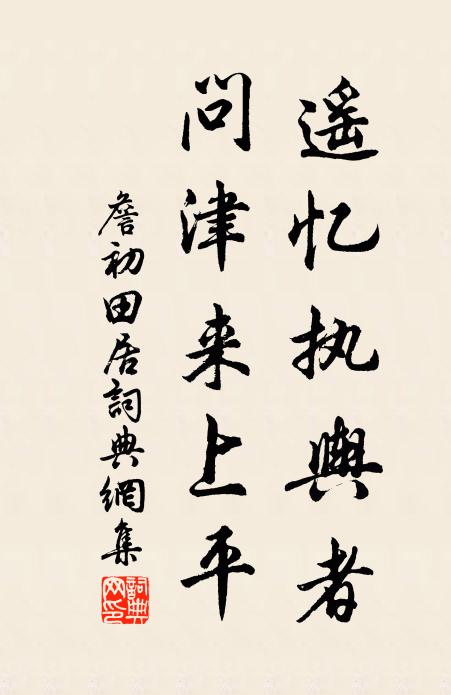 遥忆执舆者
问津来上平
詹初田居詞典網集
詞典网印